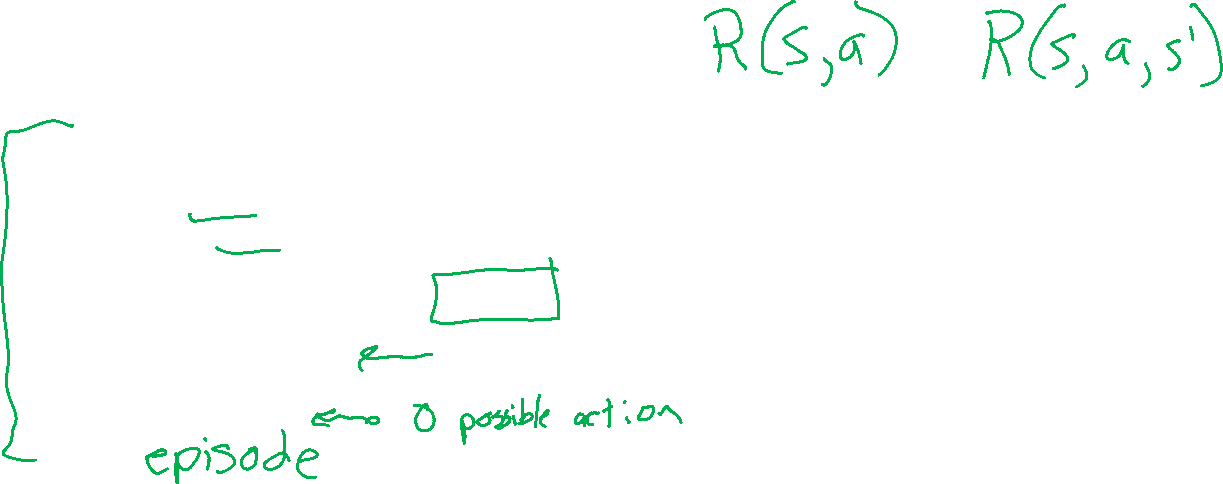 R(s,a) R(s,a,s')
0 possible action
episode